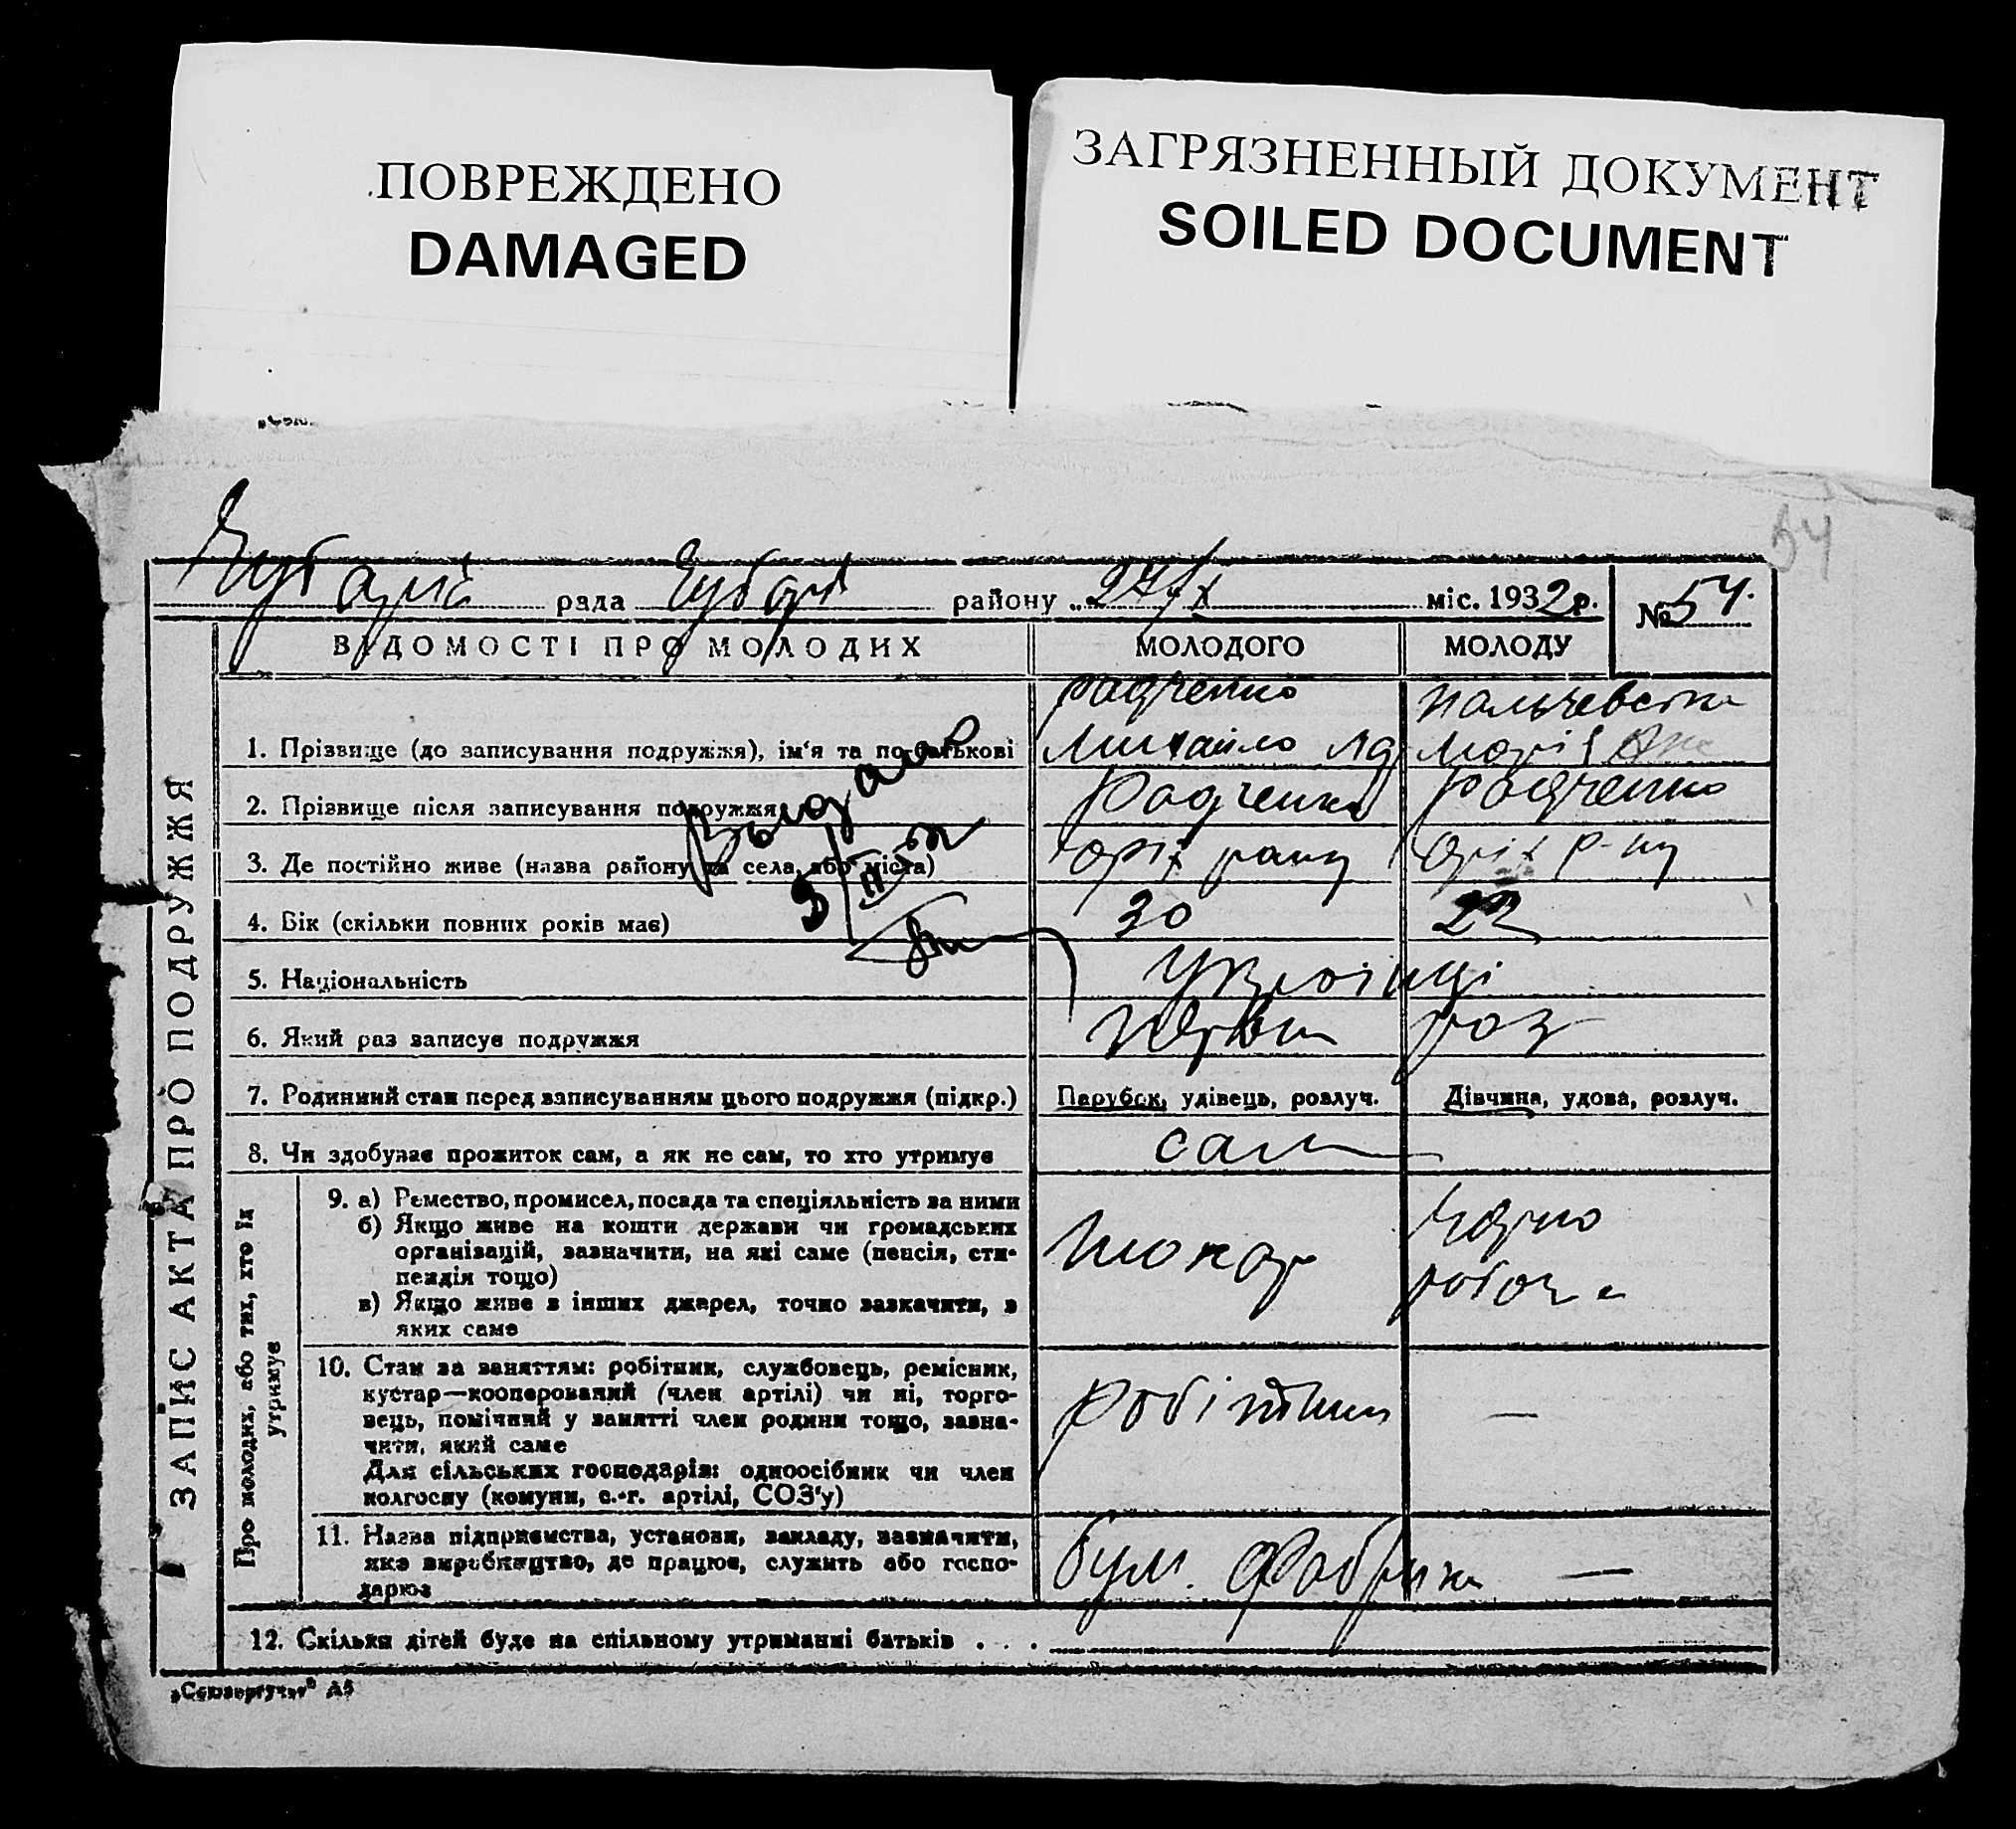 ПОВРЕЖДЕНО
DAMAGED
ЗАГРЯЗНЕННЫЙ ДОКУМЕНТ
SOILED DOCUMENT
54
рада района району 27/X міс. 1932 р. № 54.
ЗАПИС АКТА ПРО ПОДРУЖЖЯ
ВІДОМОСТІ ПРО МОЛОДИХ МОЛОДОГО МОЛОДУ
Радченко
1. Прізвище (до записування подружжя), ім'я та по-батькові Михайло
2. Прізвище після записування подружжя Радченко Радченко
3. Де постійно живе (назва району та села, або міста) оріх рану оріх р-ну
4. Вік (скільки повних років має) 30 22
5. Національність Українці
6. Який раз записує подружжя перьвий раз
7. Родинний стан перед записуванням цього подружжя (підкр.) Парубок, удівець, розлуч. Дівчина, удова, розлуч.
8. Чи здобуває прожиток сам, а як не сам, то хто утримує сам
Про молодих, або тих, хто їх утримує
9. а) Ремество, промисел, посада та спеціяльність за ними
б) Якщо живе на кошти держави чи громадських
організацій, зазначити, на які саме (пенсія, сти-
пендія тощо)
в) Якщо живе з інших джерел, точно зазначити, з
яких саме
токар
чорно
робоча
10. Стан за заняттям: робітник, службовець, ремісник,
кустар—кооперований (член артілі) чи ні, торго-
вець, помічний у занятті член родини тощо, зазна-
чити, який саме
Для сільських господарів: одноосібник чи член
колгоспу (комуни, с.-г. артілі, СОЗ'у)
робітник —
11. Назва підприємства, установи, закладу, зазначити,
яке виробництво, де працює, служить або госпо-
дарює
бум. фабрика —
12. Скільки дітей буде на спільному утриманні батьків . . .